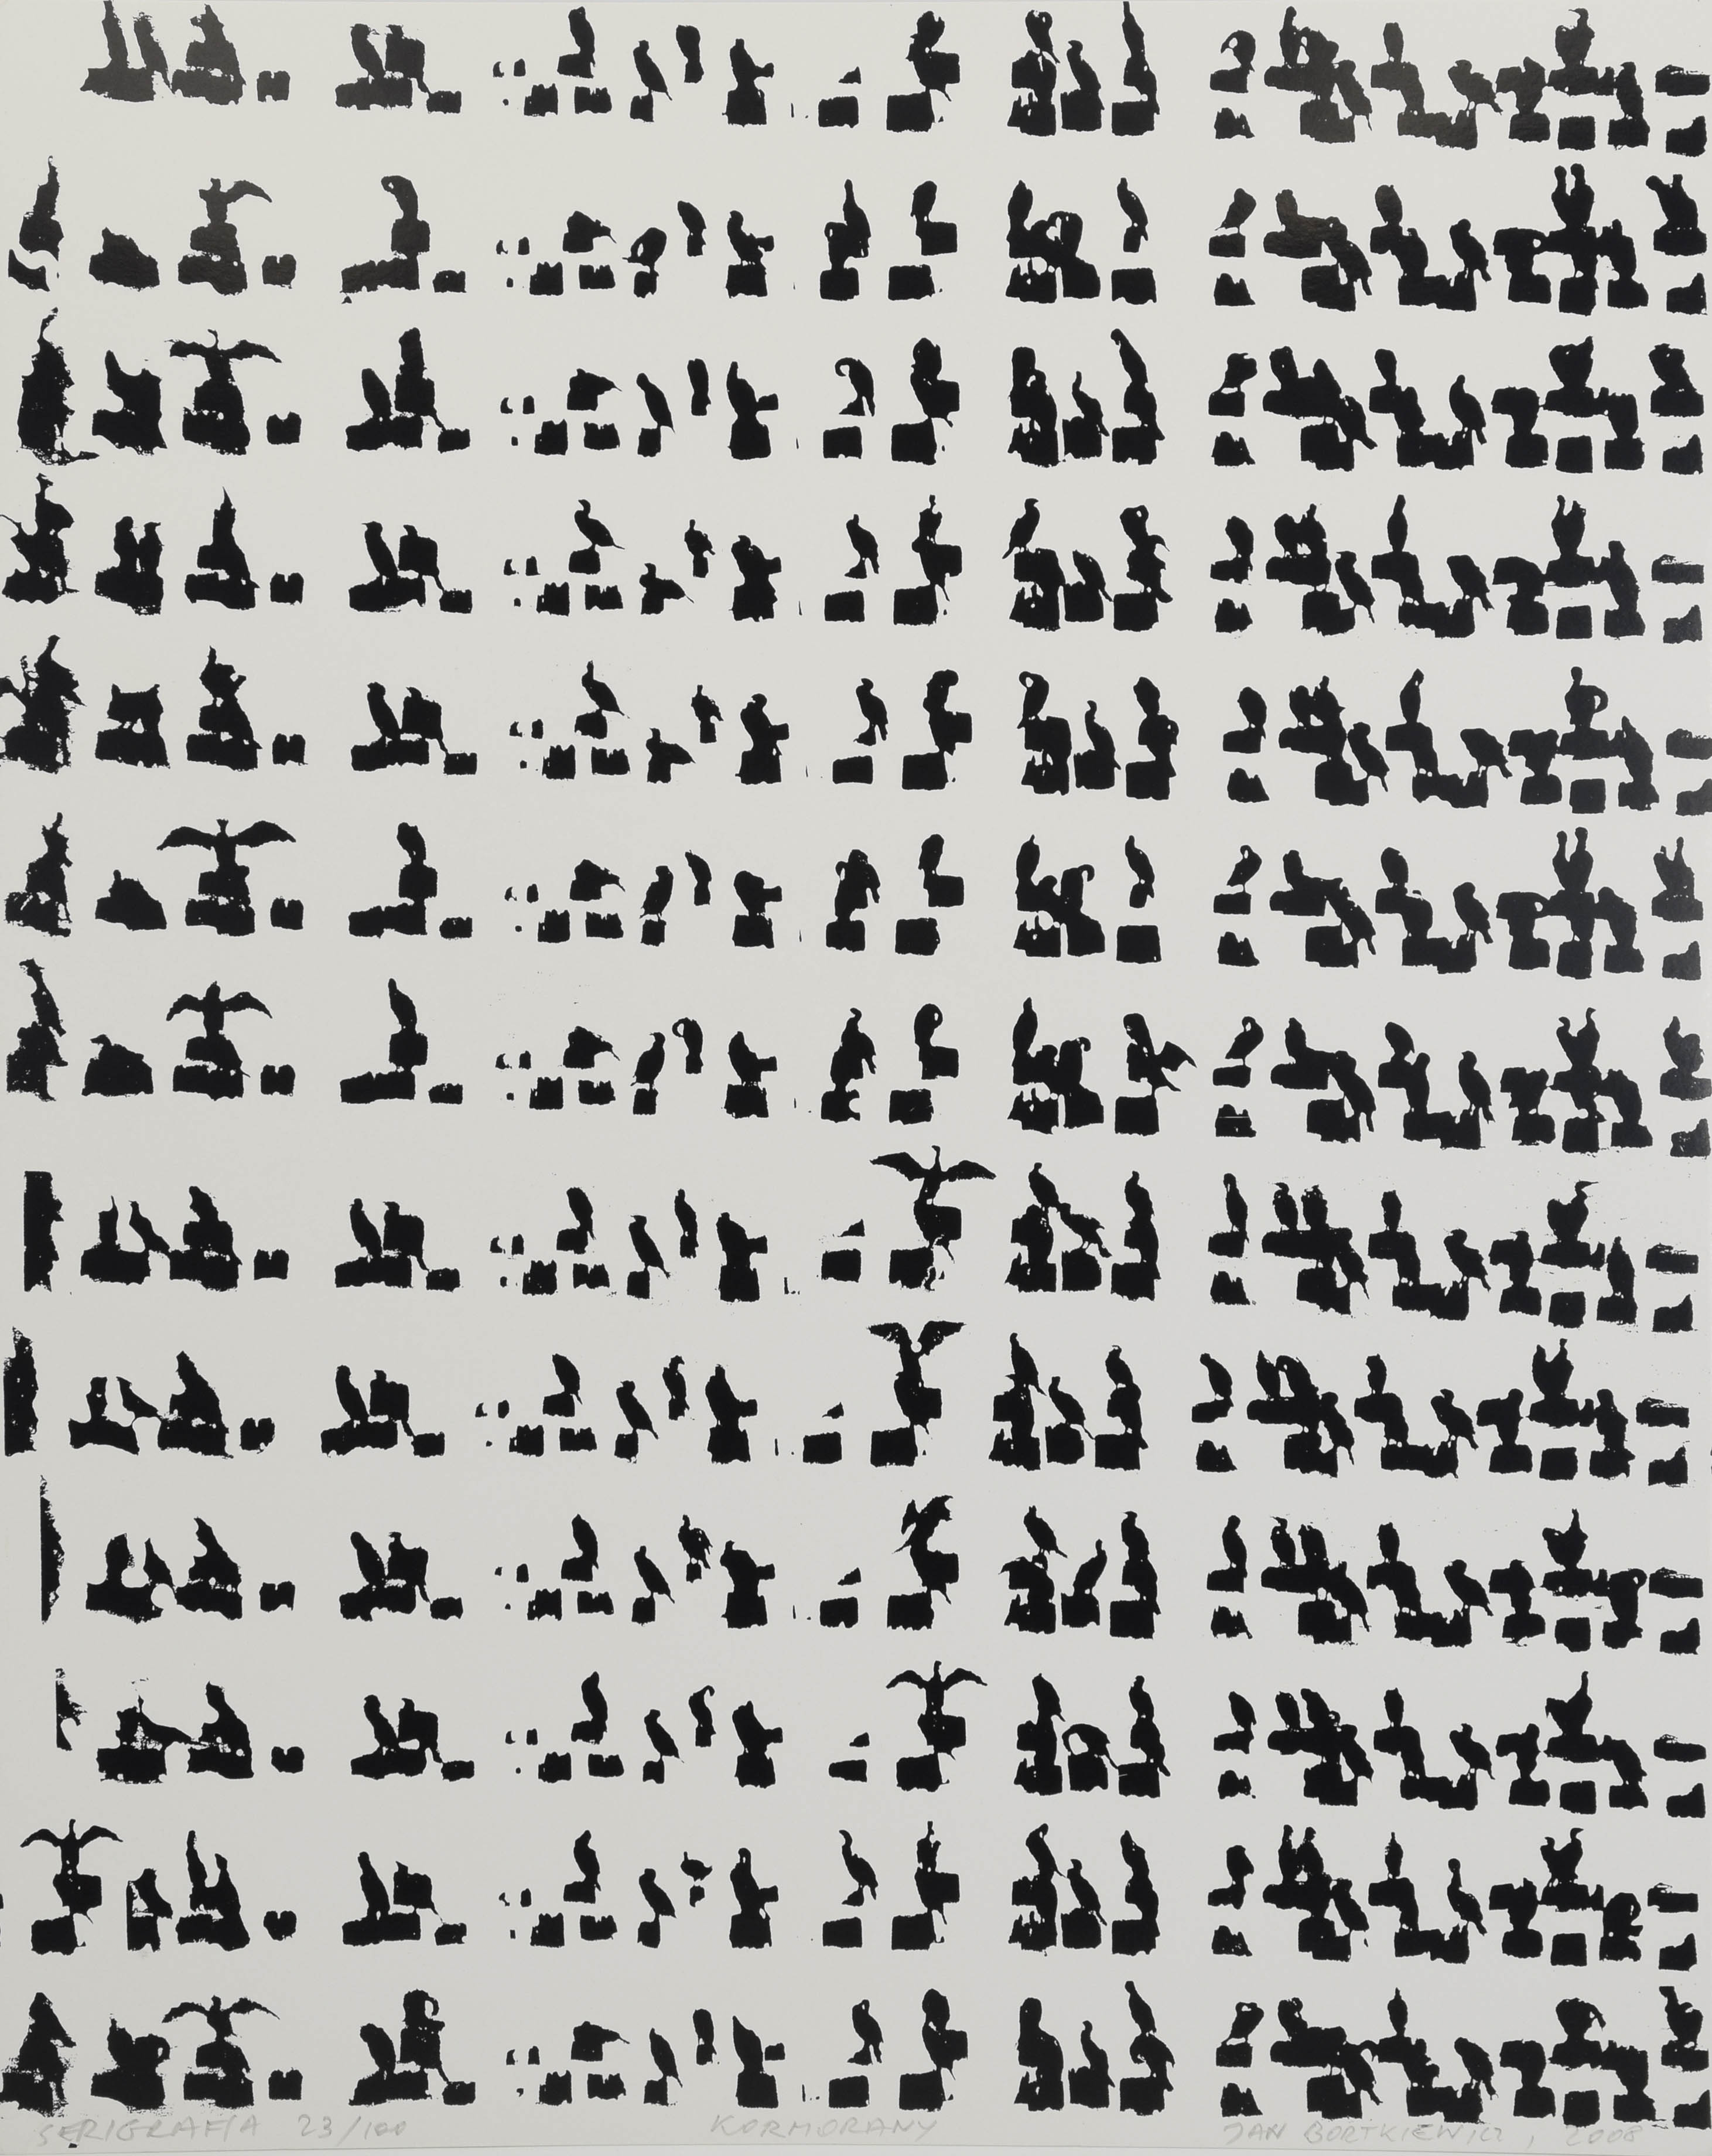 SERIGRAFIA 23/100 KORMORANY JAN BORTKIEWICZ, 2008